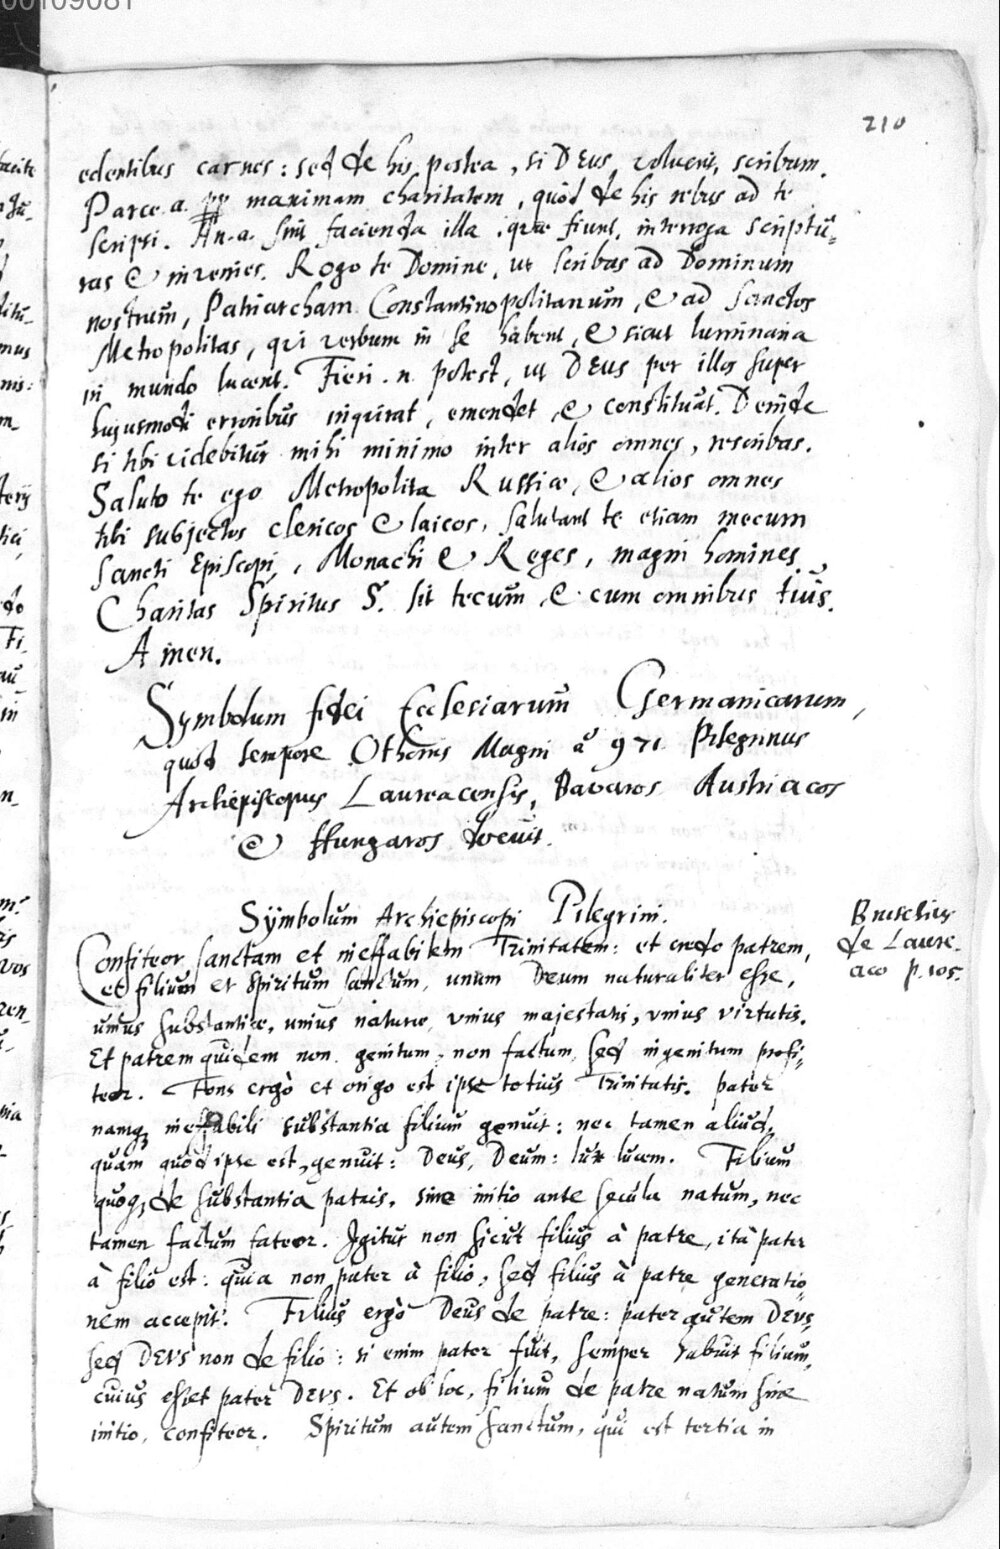 00109081
210
edentibus carnes: sed de his postea, si DEUS voluerit, scribum.
Parce. a. pp maximam charitatem, quòd de his rebus ad te
scripsi. An. a. sint facienda illa, quæ fiunt, interroga scriptu-
ras & invenies. Rogo te Domine, ut scribas ad Dominum
nostrum, Patriarcham Constantinopolitanum, & ad sanctos
Metropolitas, qui verbum in se habent, & sicut luminaria
in mundo lucent. Fieri. n. potest, ut DEUS per illos super
hujusmodi erroribus inquirat, emendet & constituat. Deinde
si tibi videbitur mihi minimo inter alios omnes, rescribas.
Saluto te ego Metropolita Russiæ, & alios omnes
tibi subjectos clericos & laicos, salutant te etiam mecum
sancti Episcopi, Monachi & Reges, magni homines,
Charitas Spiritus S. sit tecum & cum omnibus tuis.
Amen.
Symbolum fidei Ecclesiarum Germanicarum,
quod tempore Othonis Magni aº 971 Pilegrinus
Archiepiscopus Laureacensis, Bavaros Austriacos
& Hungaros docuit.
Symbolum Archiepiscopi Pilegrini.
Bruschius
de Laure-
aco p. 105.
Confiteor sanctam et ineffabilem Trinitatem: et credo patrem,
et filium et Spiritum sanctum, unum Deum naturaliter esse,
unius substantiæ, unius naturæ, unius majestatis, unius virtutis.
Et patrem quidem non genitum, non factum, sed ingenitum profi-
teor. Fons ergò et origo est ipse totius Trinitatis. pater
namq; ineffabili substantia filium genuit: nec tamen aliud,
quam quod ipse est, genuit: Deus, Deum: lux lucem. Filium
quoq; de substantia patris, sine initio ante secula natum, nec
tamen factum fateor. Igitur non sicut filius à patre, ità pater
à filio est: quia non pater à filio, sed filius à patre generatio-
nem accepit. Filius ergò Deus de patre: pater autem DEVS,
sed DEVS non de filio: si enim pater fuit, semper habuit filium,
cuius esset pater DEVS. Et ob hoc, filium de patre natum sine
initio, confiteor. Spiritum autem sanctum, qui est tertia in